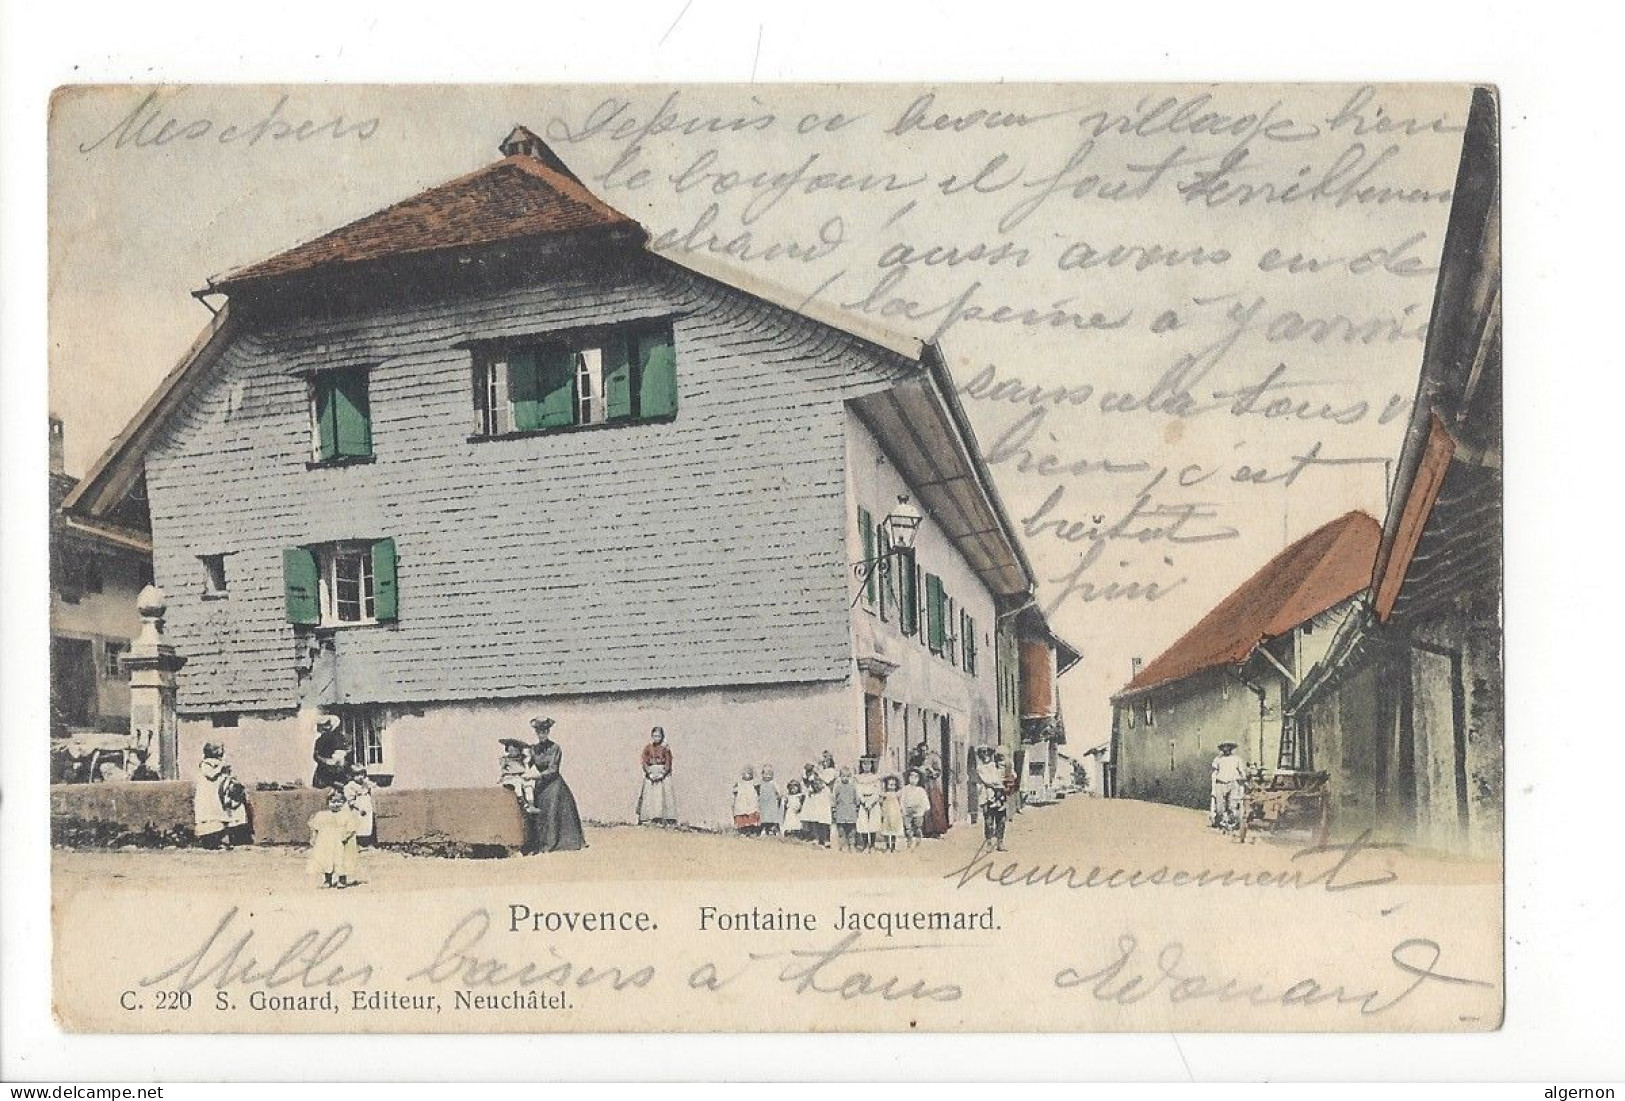 Meschers
Depuis ce beau village bien
le bonjour il fait terriblement
chaud, aussi avons eu de
la peine à y arriv
sans cela tous v
bien, c'est
breitôt
fini
heureusement
Provence. Fontaine Jacquemard.
Milles baisers à tous Edouard
C. 220 S. Gonard, Editeur, Neuchâtel.
delcampe.net
algernon